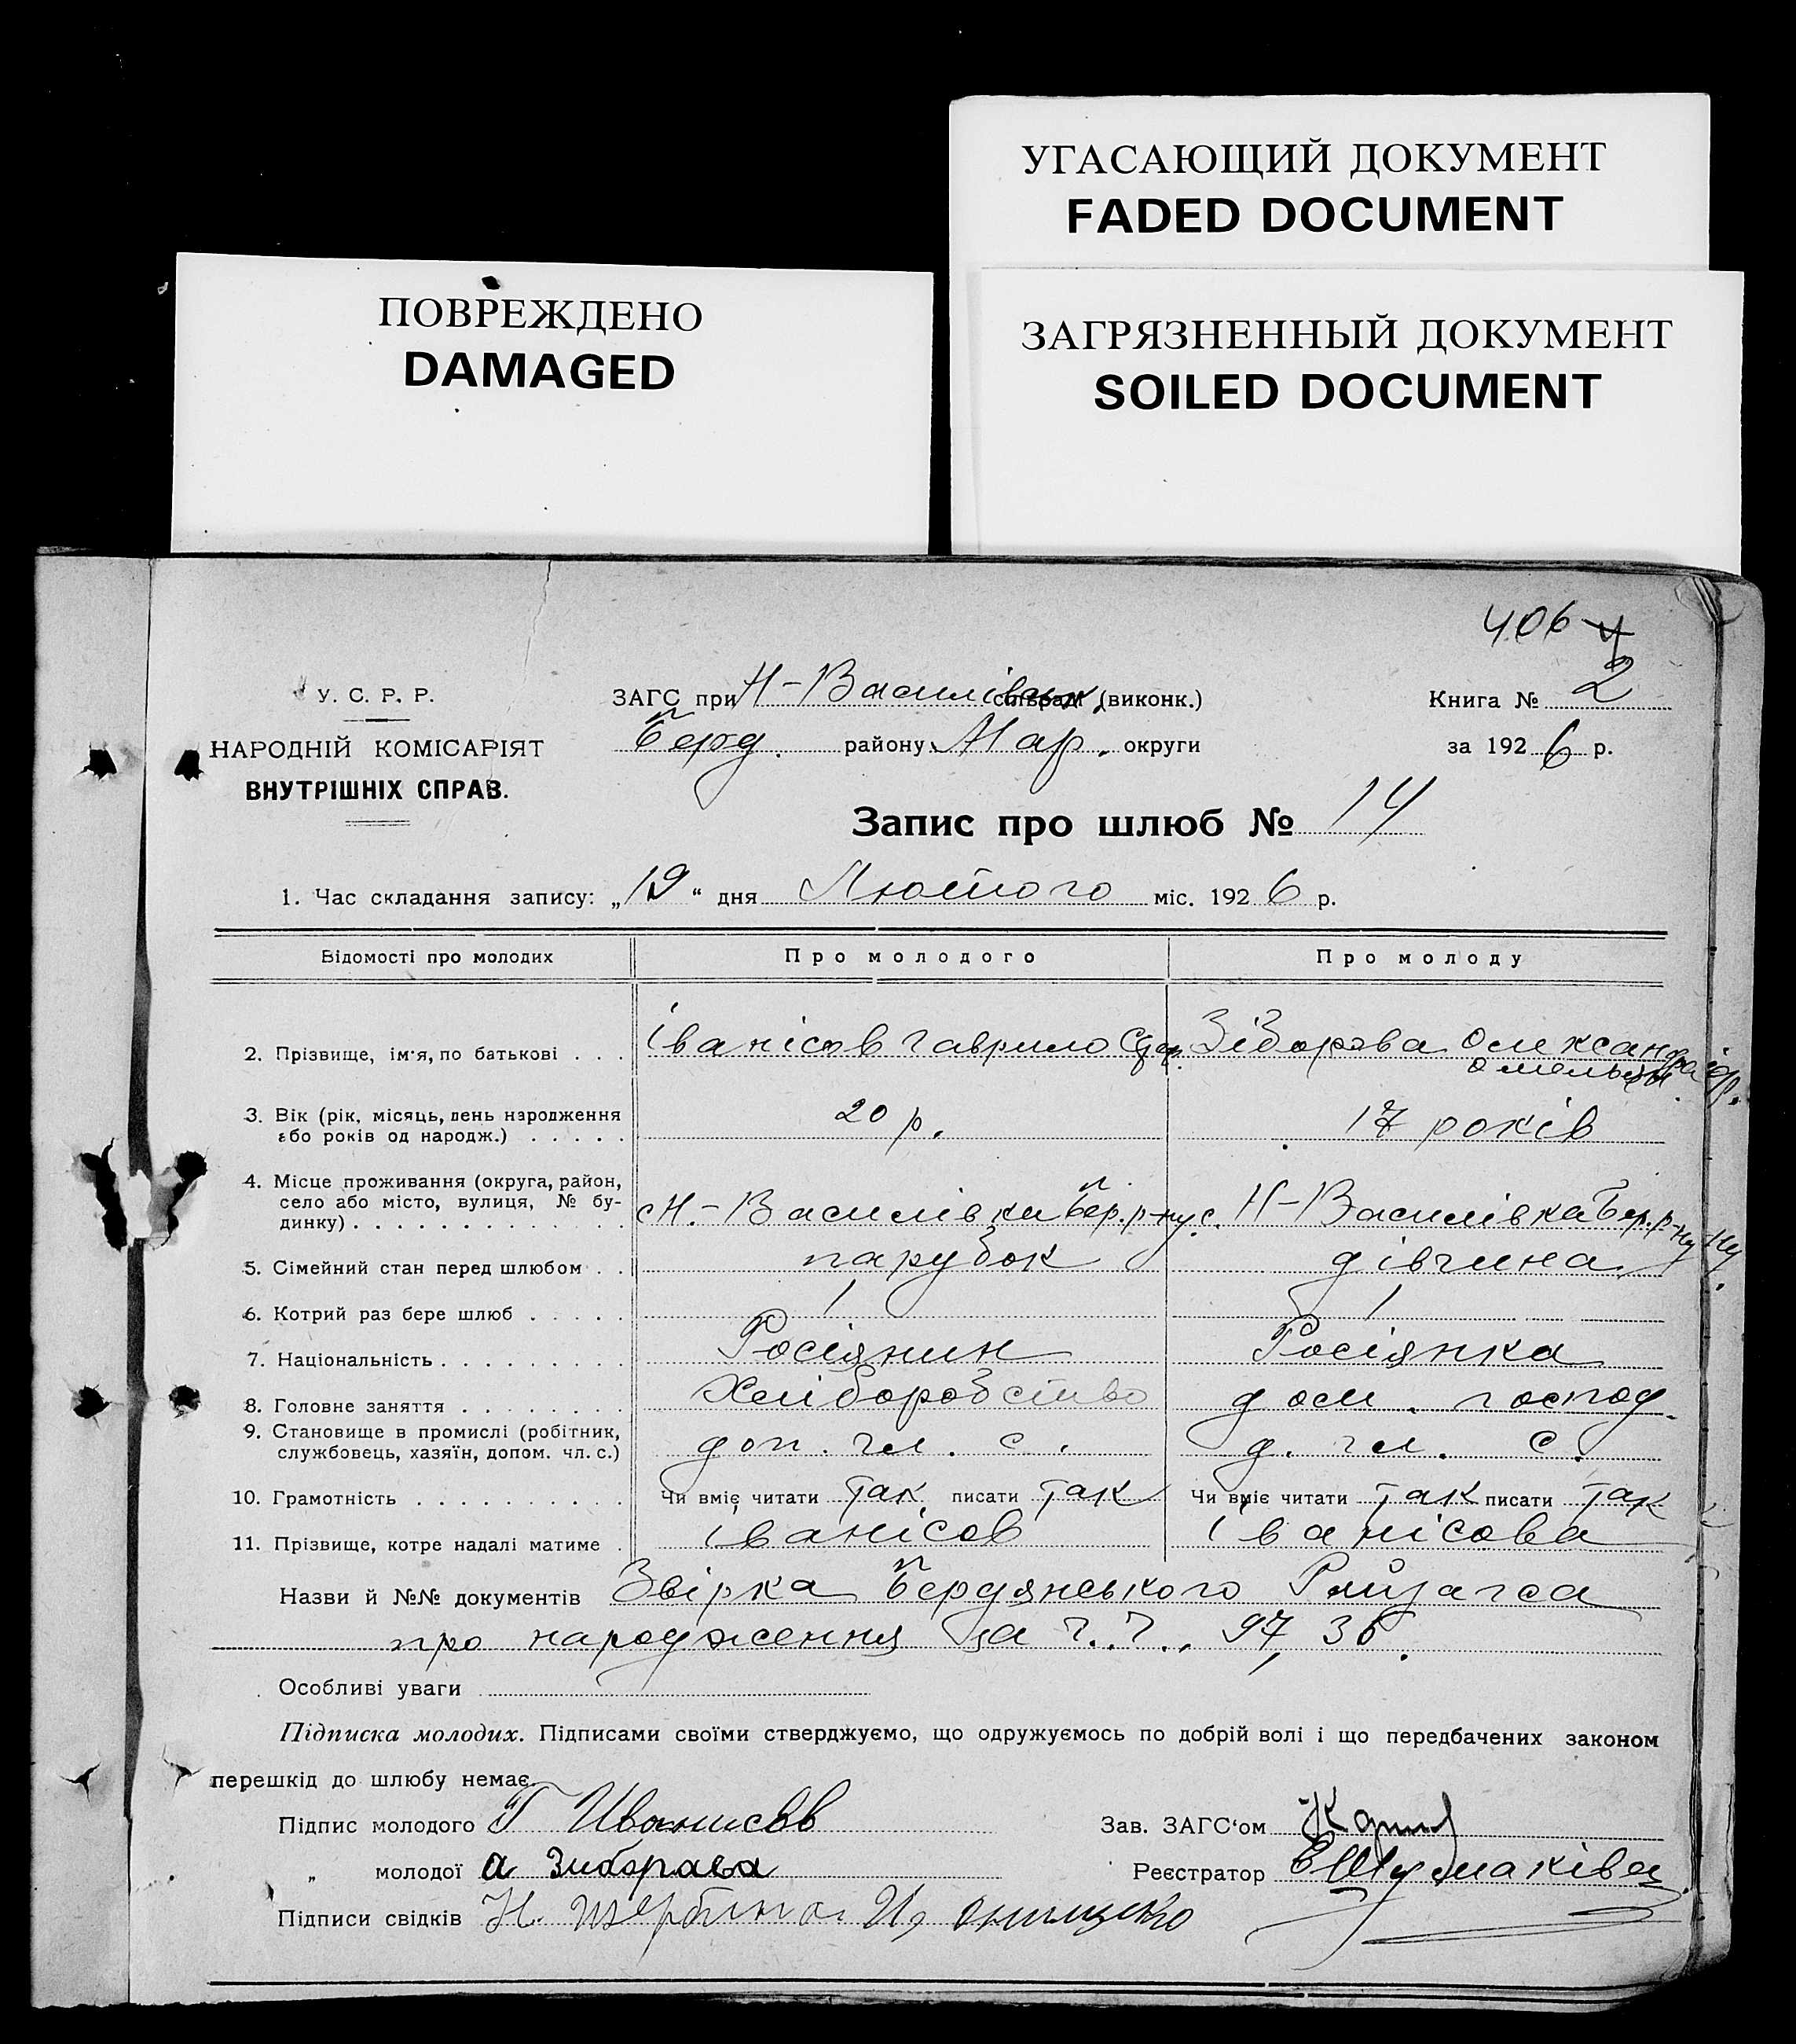 УГАСАЮЩИЙ ДОКУМЕНТ
FADED DOCUMENT
ПОВРЕЖДЕНО
DAMAGED
ЗАГРЯЗНЕННЫЙ ДОКУМЕНТ
SOILED DOCUMENT
406
У. С. Р. Р.
ЗАГС при Н-Василівськ. (виконк.)
Книга № 2
НАРОДНІЙ КОМІСАРІЯТ
Берд. району Мар. округи
за 1926 р.
ВНУТРІШНІХ СПРАВ.
Запис про шлюб № 14
1. Час складання запису: „19“ дня Лютого міс. 1926 р.
Відомості про молодих Про молодого Про молоду
2. Прізвище, ім'я, по батькові . . . Іванісов Гаврило Зіборова Олександра
3. Вік (рік, місяць, день народження
або років од народж.) . . . . . 20 р. 17 років
4. Місце проживання (округа, район,
село або місто, вулиця, № бу-
динку) . . . . . . . . . . . . . с Н.-Василівка Бер. р-ну с. Н-Василівка Бер. р-ну
5. Сімейний стан перед шлюбом . . парубок дівчина
6. Котрий раз бере шлюб . . . . . 1 1
7. Національність . . . . . . . . . Росіянин Росіянка
8. Головне заняття . . . . . . . . Хліборобство дом. господ.
9. Становище в промислі (робітник,
службовець, хазяїн, допом. чл. с.) доп. чл. с. д. чл. с.
10. Грамотність . . . . . . . . . . Чи вміє читати так писати так Чи вміє читати так писати так
11. Прізвище, котре надалі матиме . Іванісов Іванісова
Назви й №№ документів Звірка Бердянського Райзагса
про народження за ч.ч. 97, 36.
Особливі уваги
Підписка молодих. Підписами своїми стверджуємо, що одружуємось по добрій волі і що передбачених законом
перешкід до шлюбу немає.
Підпис молодого Г Иванисов Зав. ЗАГС'ом
„ молодої а Зиборова Реєстратор
Підписи свідків Н. Щербина